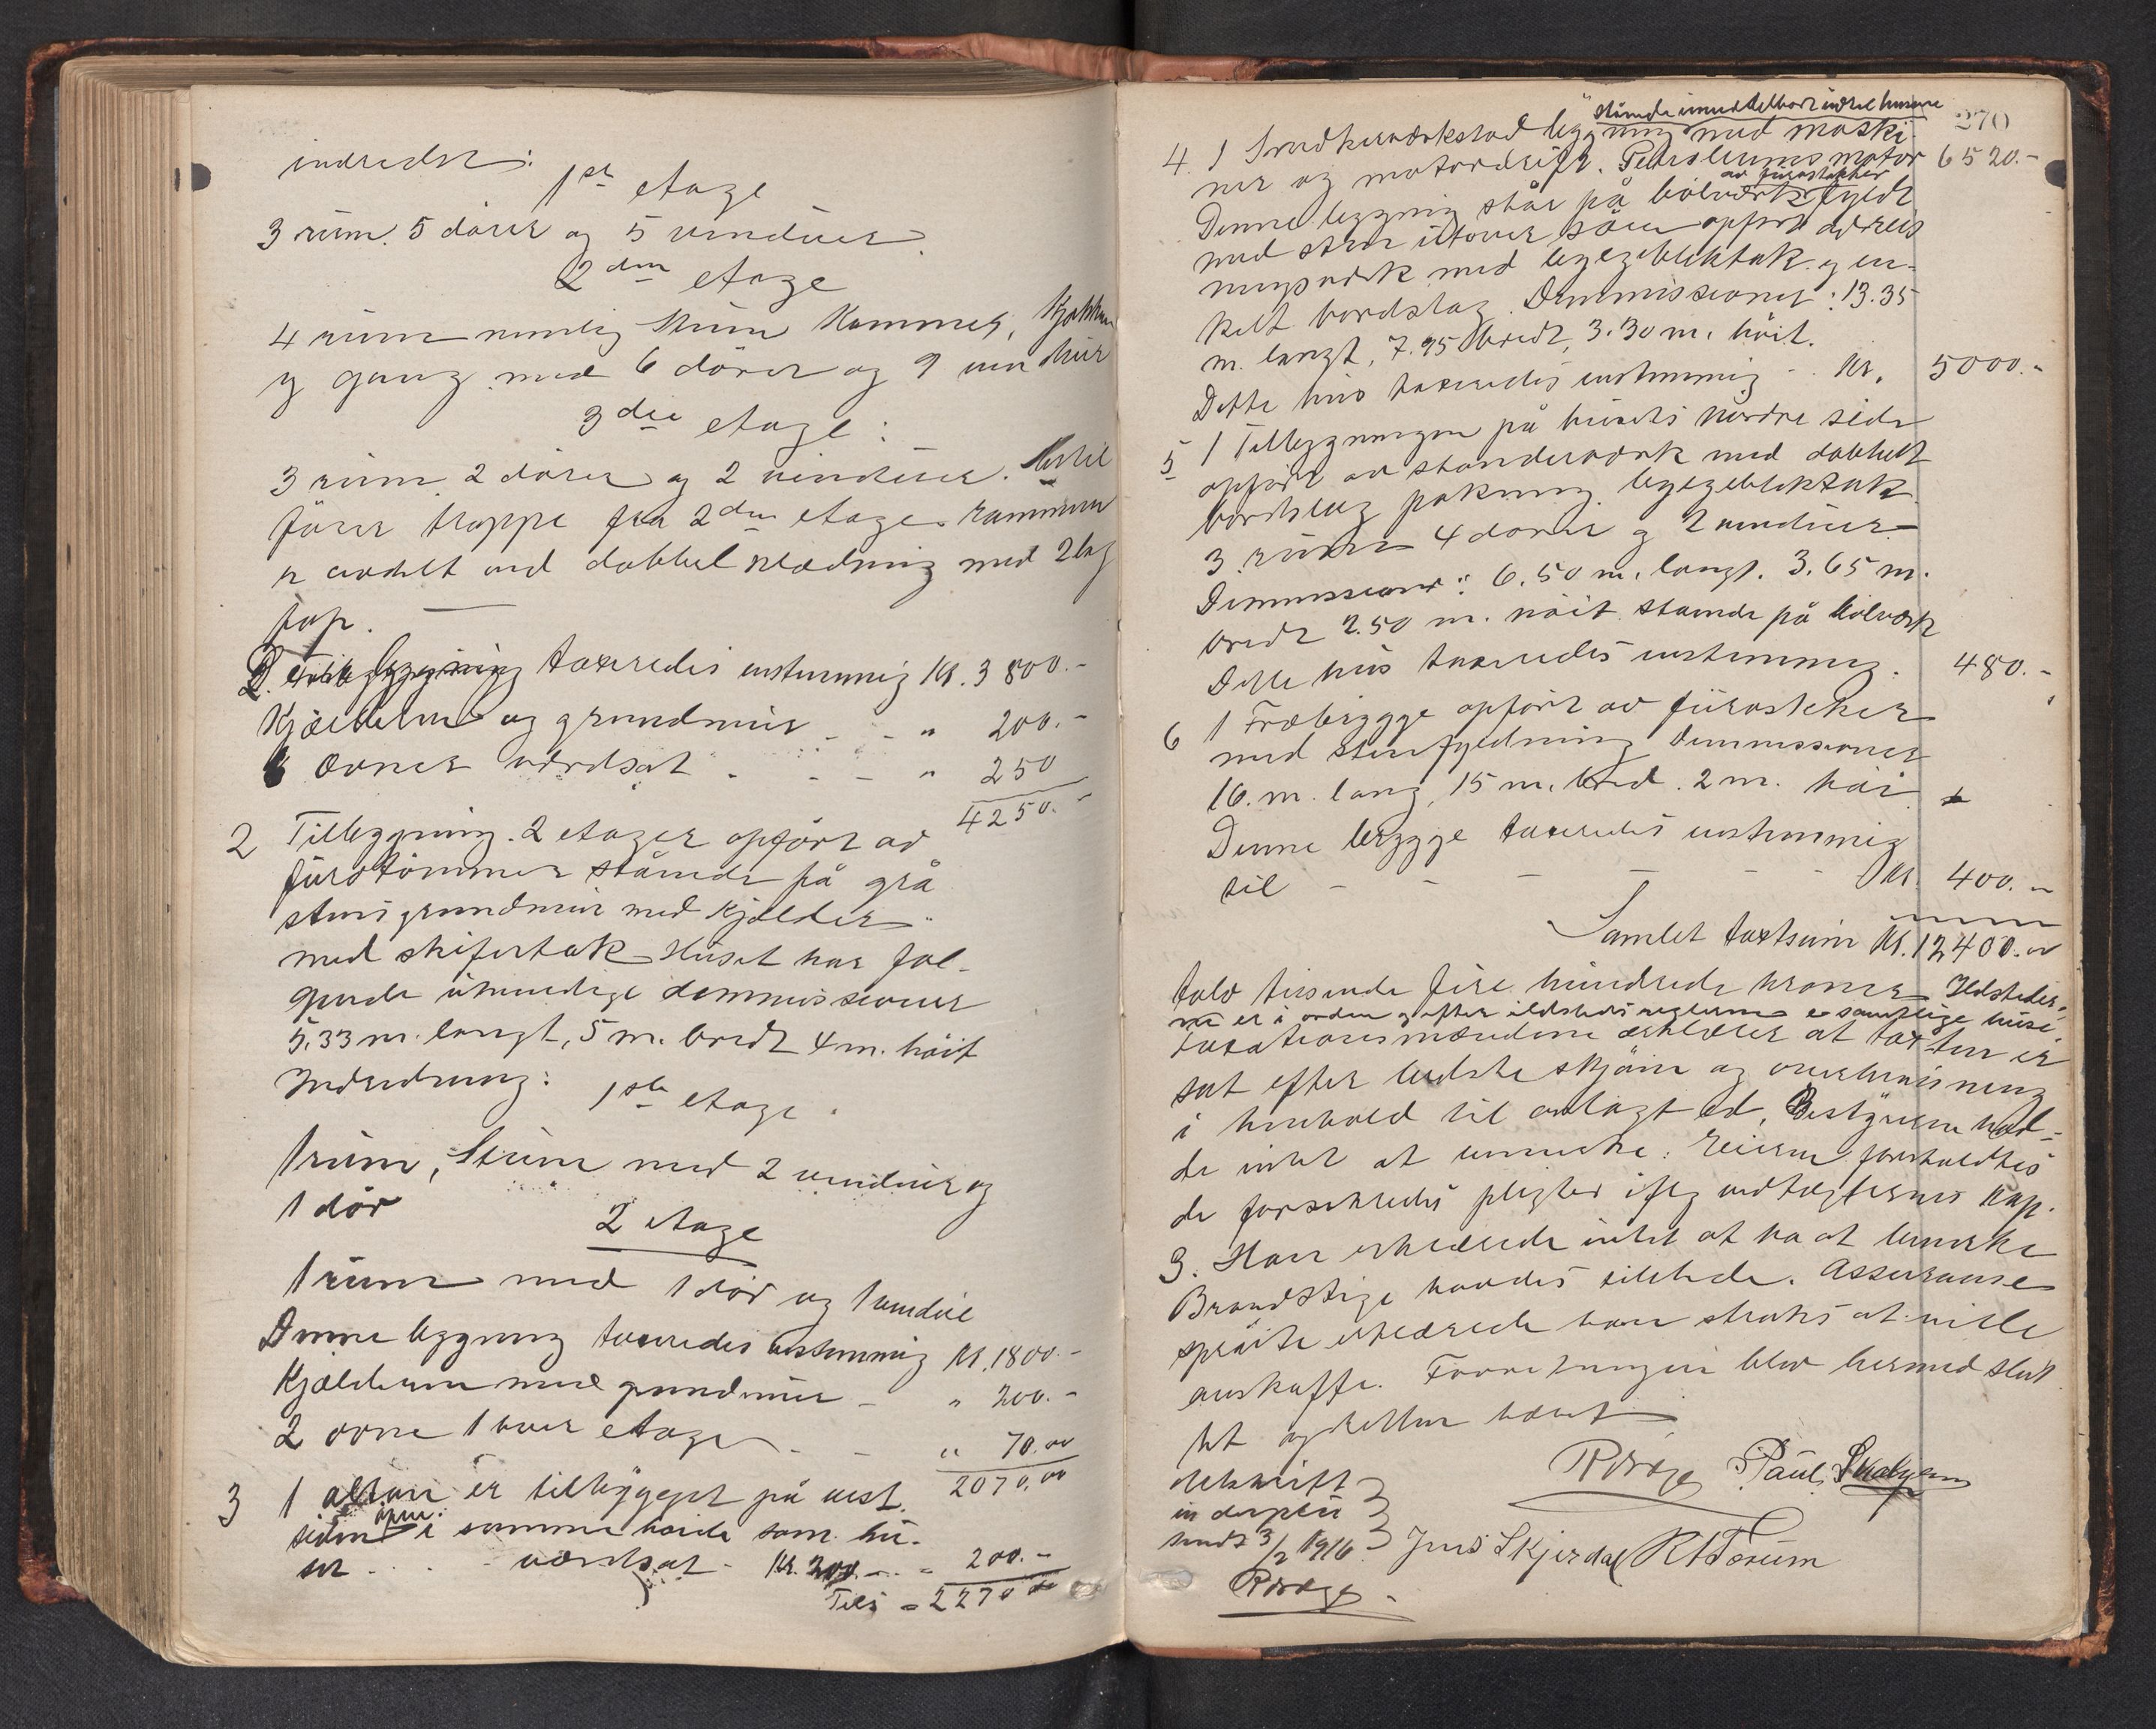 indredet:
1ste etage
3 rum. 5 dører og 5 vinduer
2den etage
4 rum nemlig Stue Kammer, Kjøkken
og gang med 6 dører og 9 vinduer
3die etage:
3 rum 2 dører og 2 vinduer. Hertil
fører trappe fra 2den etage. rummene
er avdelt ved dobbel klædning med 2 lag
pap.
bygning taxeredes enstemmig Kr. 3800.-
Kjælderen og grundmur - - " 200.-
6 ovner værdsat - - - " 250
4250.-
2 Tilbygning. 2 etager opført av
furutømmer stående på grå
stensgrundmur med kjælder
med skifertak Huset har føl-
gende utvendige demmissioner
5.33 m. langt, 5 m. bredt 4 m. høit
Indredning:
1ste etage.
1 rum, Stue med 2 vinduer og
1 dør
2 etage
1 rum med 1 dør og 1 vindue
Denne bygning taxeredes enstemmig Kr. 1800.-
Kjælderen med grundmur - " 200.-
2 ovne 1 hver etage - - " 70.00
2070.00
3 1 altan er tilbygget på vest.
siden åpen i samme høide som hu-
set - - værdsat - Kr. 200 - - 200.-
Tils = 2270
270
stående umiddelbart indtil husene
4. 1 Snedkerværkstad bygning med maski
ner og motordrift. Petroleumsmotor 6520.-
av furustokker
Denne bygning står på bolværk fyldt
med sten utover søen opført av reis
ningsverk med bølgebliktak og en-
kelt bordslag. Demmissioner: 13.35
m. langt, 7.95 bredt, 3.30 m. høit.
Dette hus taxeredes enstemmig - - Kr. 5000.-
5 1 Tilbygningen på husets nordre side
opført av standerværk med dobbelt
bordslag pakning bølgebliktak
3 rum 4 dører og 2 vinduer
Demmissioner: 6.50 m. langt. 3.65 m.
bredt 2.50 m. høit stående på bolværk
Dette hus taxeredes enstemmig. 480.-
6 1 Træbrygge opført av furustokker
med stenfyldning demmissioner
16 m. lang, 15 m. bred. 2 m. høi
Denne brygge taxeredes enstemmig
til - - - - - Kr. 400.-
Samlet taxtsum Kr. 12400.00
tolv tusende fire hundrede kroner Ildsteder-
ne er i orden og efter ildsteds reglerne samtlige huse
Taxationsmændene erklærer at taxten er
sat efter bedste skjøn og overbevisning
i henhold til avlagt ed, Bestyreren had-
de intet at bemerke. Eieren foreholdtes
de forsikredes pligter ifølg vedtægternes Kap.
3. Han erklærede intet at ha at bemerke
Brandstige havdes tilstede. Assuranse
sprøite erklærede han straks at ville
anskaffe. Forretningen blev hermed slut
tet og retten hævet
Paul
utskrift
sendt 3/2 1916. Jens Skjerdal